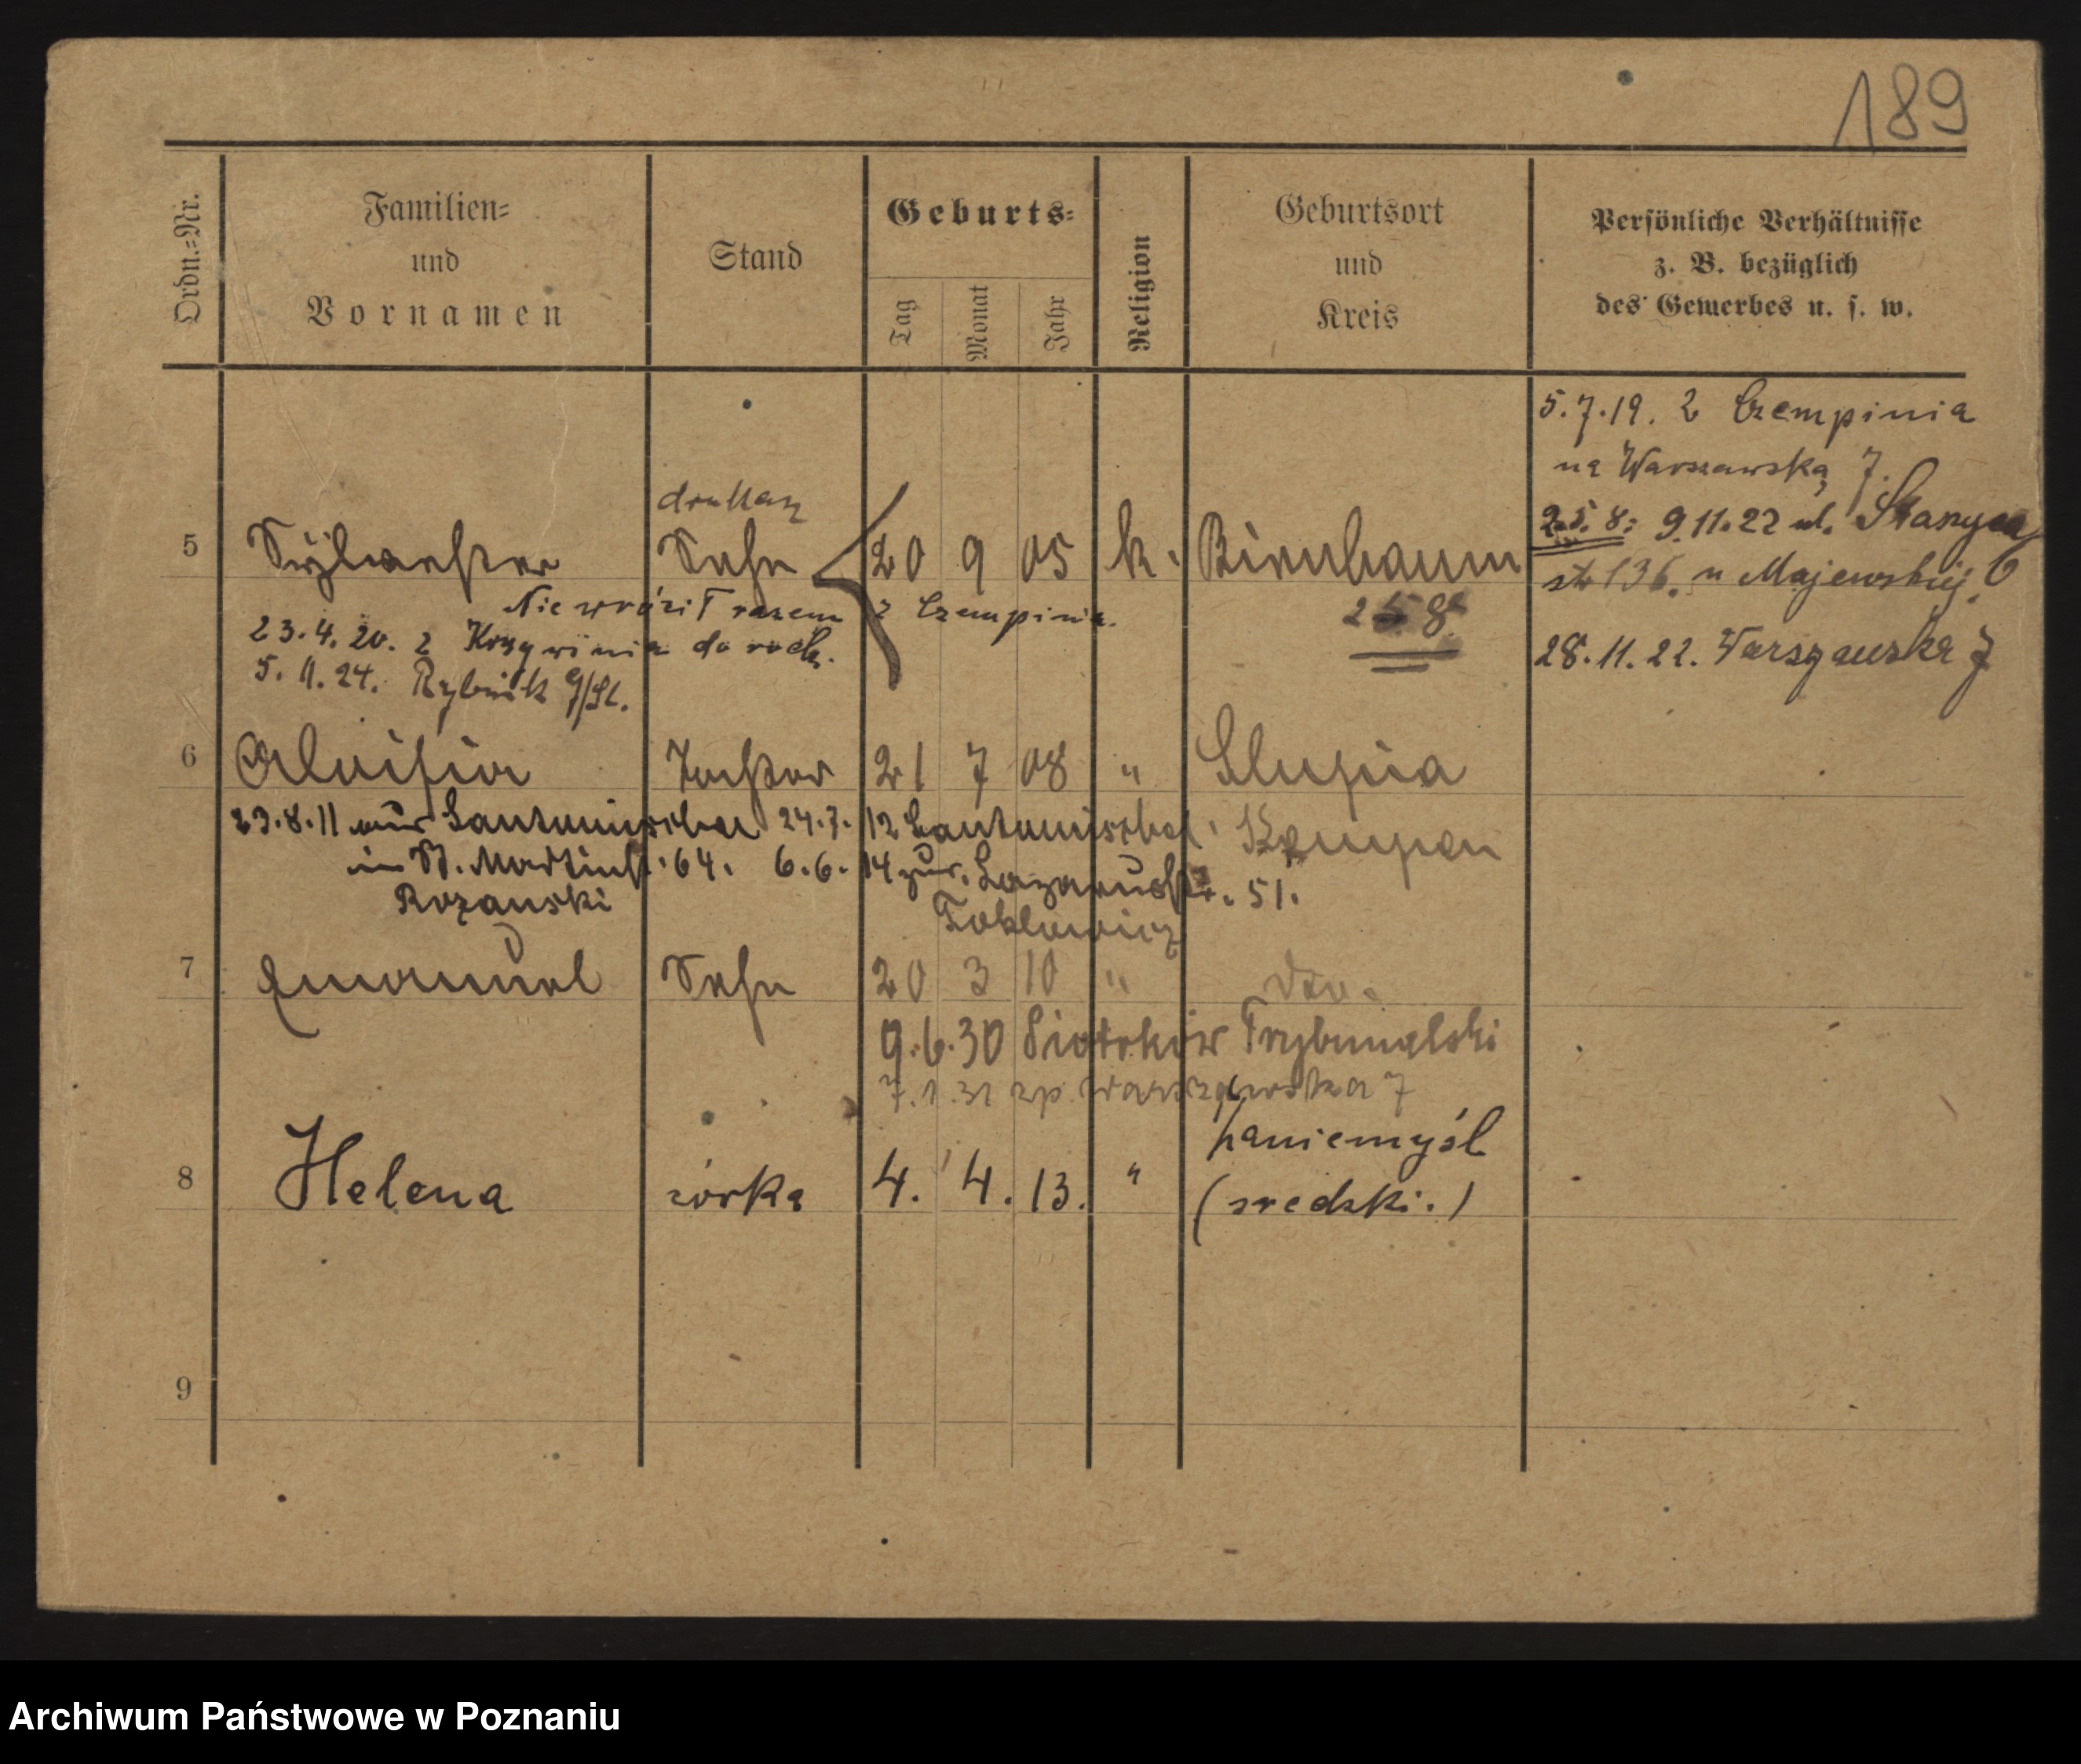 189
Ordn.-Nr.
Familien-
und
Vornamen
Stand
Geburts-
Tag
Monat
Jahr
Religion
Geburtsort
und
Kreis
Persönliche Verhältnisse
z. B. bezüglich
des Gewerbes u. s. w.
5.7.19. z Czempinia
na Warszawską 7.
25. 8: 9.11.22 ul.
str 136. u Majewskiej.
28.11.22. Warszawska 7
drukarz
5 Sylwester Sohn 20 9 05 k. Birnbaum
Nie wrócił razem z Czempinia.
25 8
23.4.20. z Krzywinia do rodz.
5.11.24. Rybnik G/Sl.
6 Aloisia Tochter 21 7 08 " Slupia
Kempen
23.8.11 nur Santomischel 24.7.12 Santomischel
in St. Martinstr. 64. 6.6.14 zur. Lazarusstr. 51.
Rozanski
7 Emanuel Sohn 20 3 10 " dto.
9.6.30 Piotrków Trybunalski
7.1.31 zp. Warszawska 7
8 Helena córka 4. 4. 13. " Zaniemyśl
(średzki.)
9
Archiwum Państwowe w Poznaniu